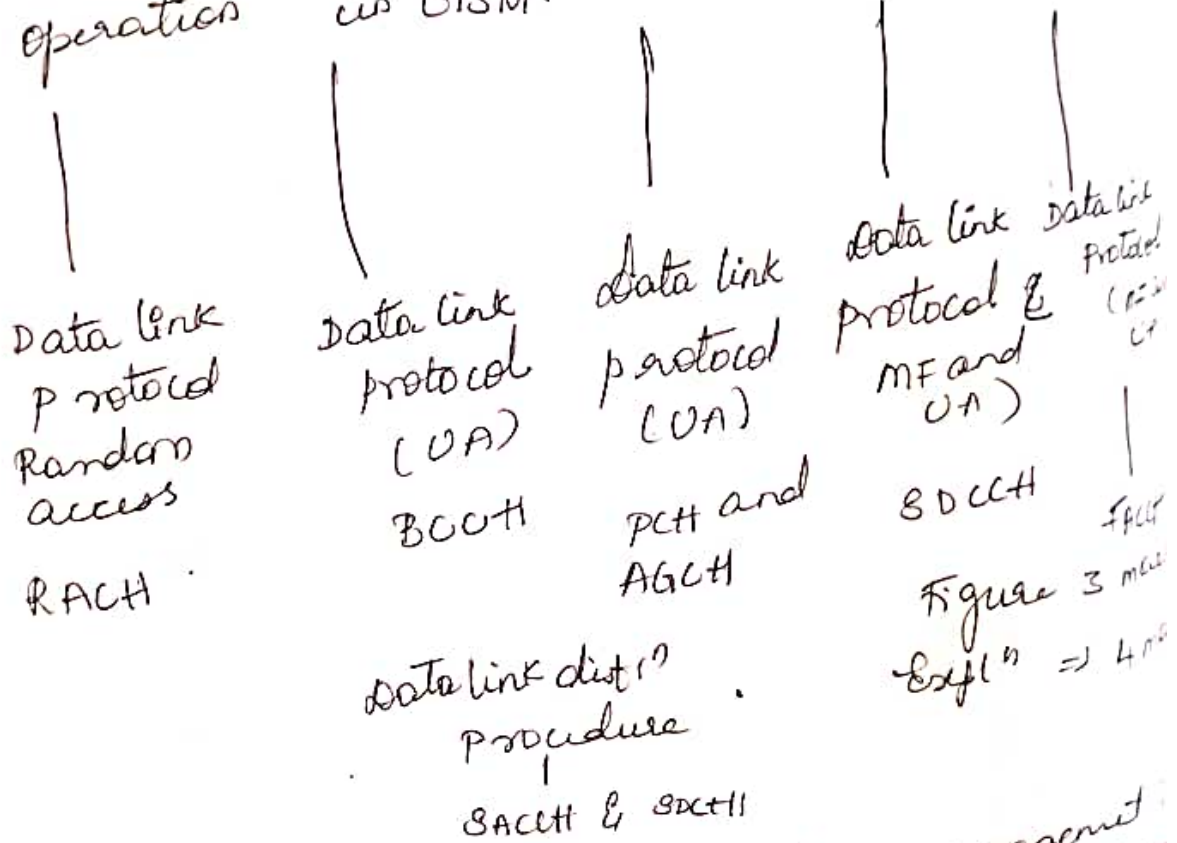 operation in GSM.
Data link
Protocol
Random
access
RACH
Data link
protocol
(UA)
BCCH
Data link
protocol
(UA)
PCH and
AGCH
Data link
protocol &
MF and
UA)
SDCCH
Data link
Protocol
Figure 3
Expl(n) => 4
Data link dist(n)
Procedure
SACCH & SDCCH